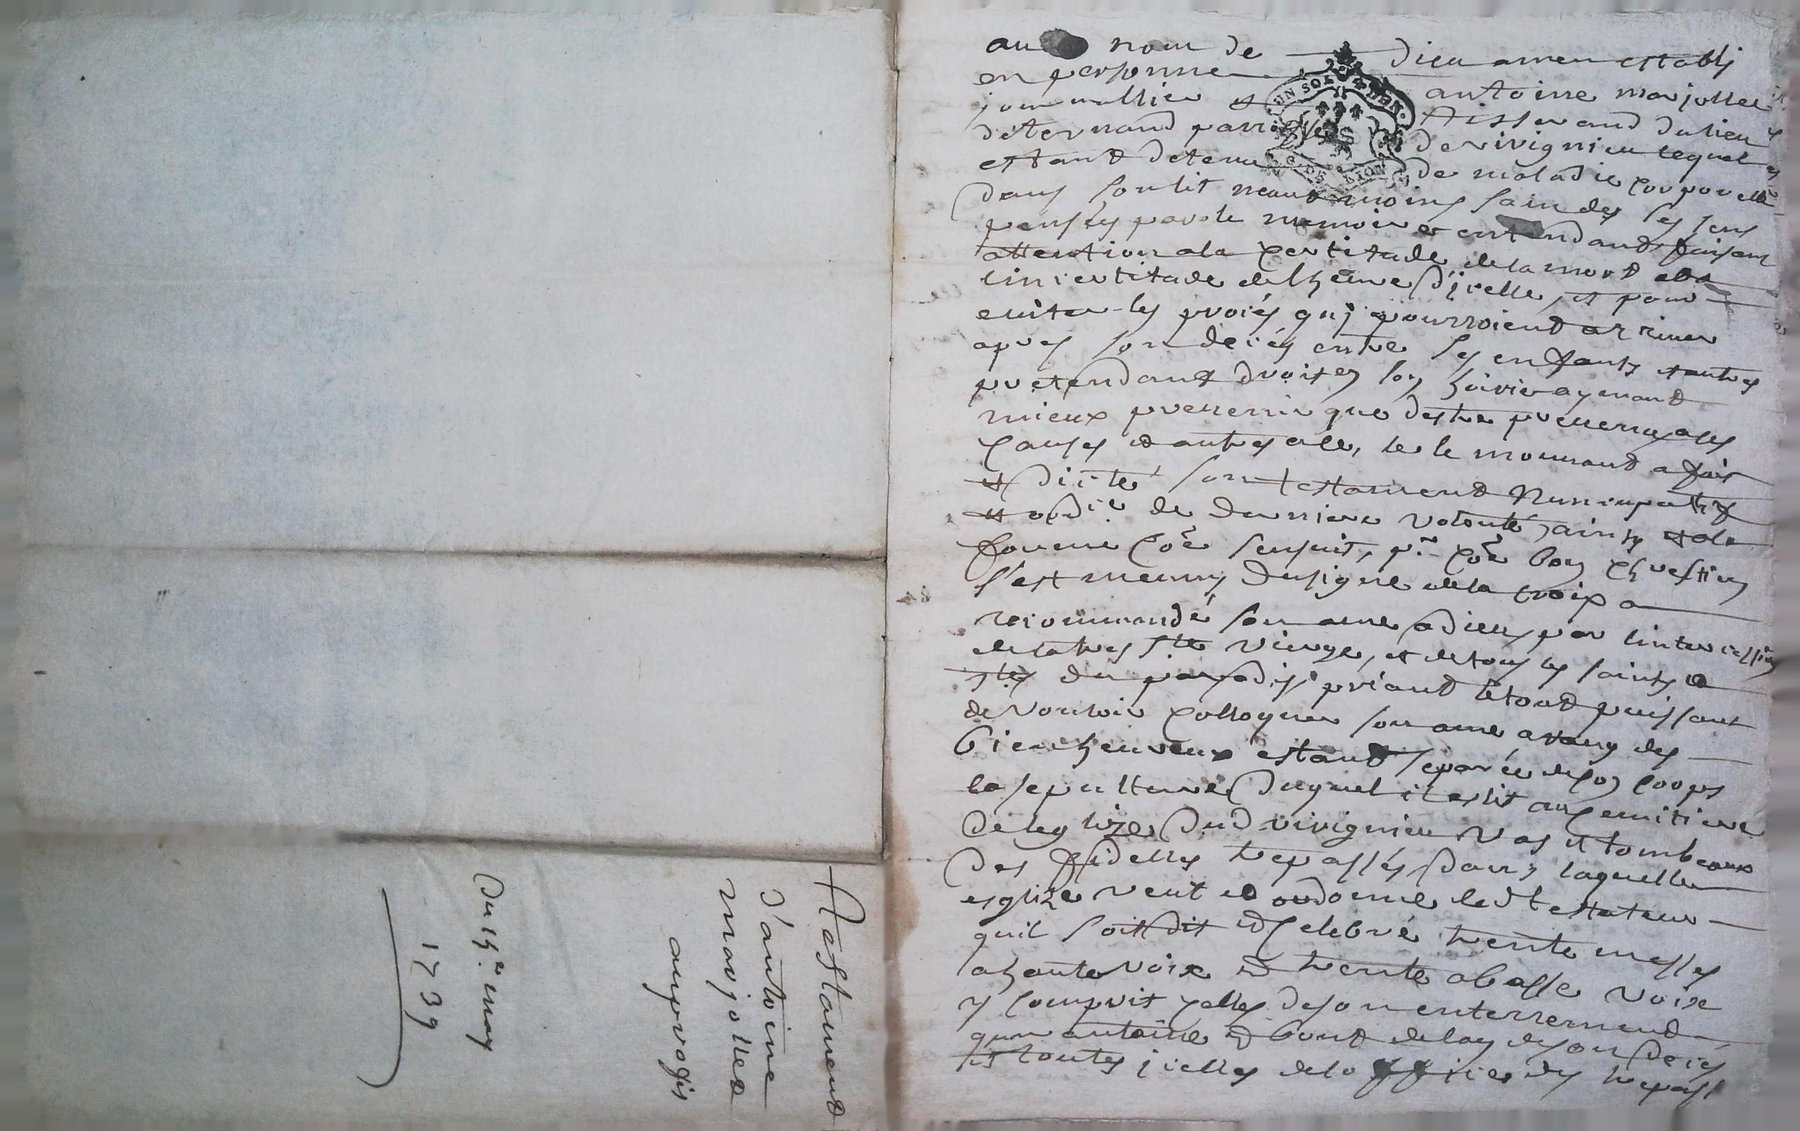 Testament
d'antoine
marjollet
du 15e may
1739
au nom de dieu amen establi
en personne antoine marjollet
journallier et tisserand du lieu
de ternand parroisse de virignieu lequel
estant detenu de maladie corporelle
dans son lit neant moins sain de ses sens
pensées parole memoire et entendand faisant
attention a la certitude de la mort et a
lincertitude de lheure dycelle, et pour
eviter les procés quj pourroient arriver
apres son decés entre ses enfants et autres
pretendant droit en son hoirie aymant
mieux prevenir que destre prevenu a ces
causes et autres a ce, le le mouvant a fait
et dicté son testament nuncupatif
et ordre de derniere volonté, ainsy et a la
forme coe sensuit, pt coe bon chrestien
s'est meuny du signe de la croix a
recommandé son ame a dieu par lintercession
de la tres ste vierge, et de tous les saints et
stes du paradis priant le tout puissant
de vouloir colloquer son ame au rang des
bienheureux estant separée de son corps
la sepulture duquel il eslit au cemitiere
de leglize dud virignieu vas et tombeaux
des fidelles trepassés dans laquelle
esglize veut et ordonne led testateur
quil soit dit et celebré trente messes
a haute voix et trente a basse voix
y compris celles de son enterrement
quarantaine et bout de lan de son decés
et toutes jcelles de loffice des trepass
UN SOL
G. DE LION